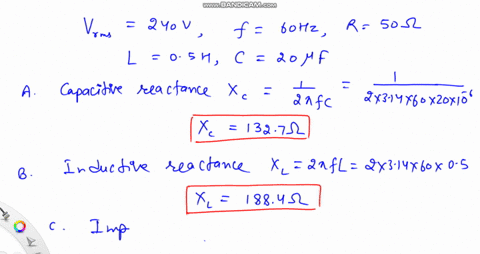 WWW.BANDICAM.COM
V_rms = 240V, f = 60Hz, R = 50Ω
L = 0.5H, C = 20μF
A. Capacitive reactance X_c = 1/2πfC = 1/2×3.14×60×20×10^-6
X_c = 132.7Ω
B. Inductive reactance X_L = 2πfL = 2×3.14×60×0.5
X_L = 188.4Ω
C. Imp